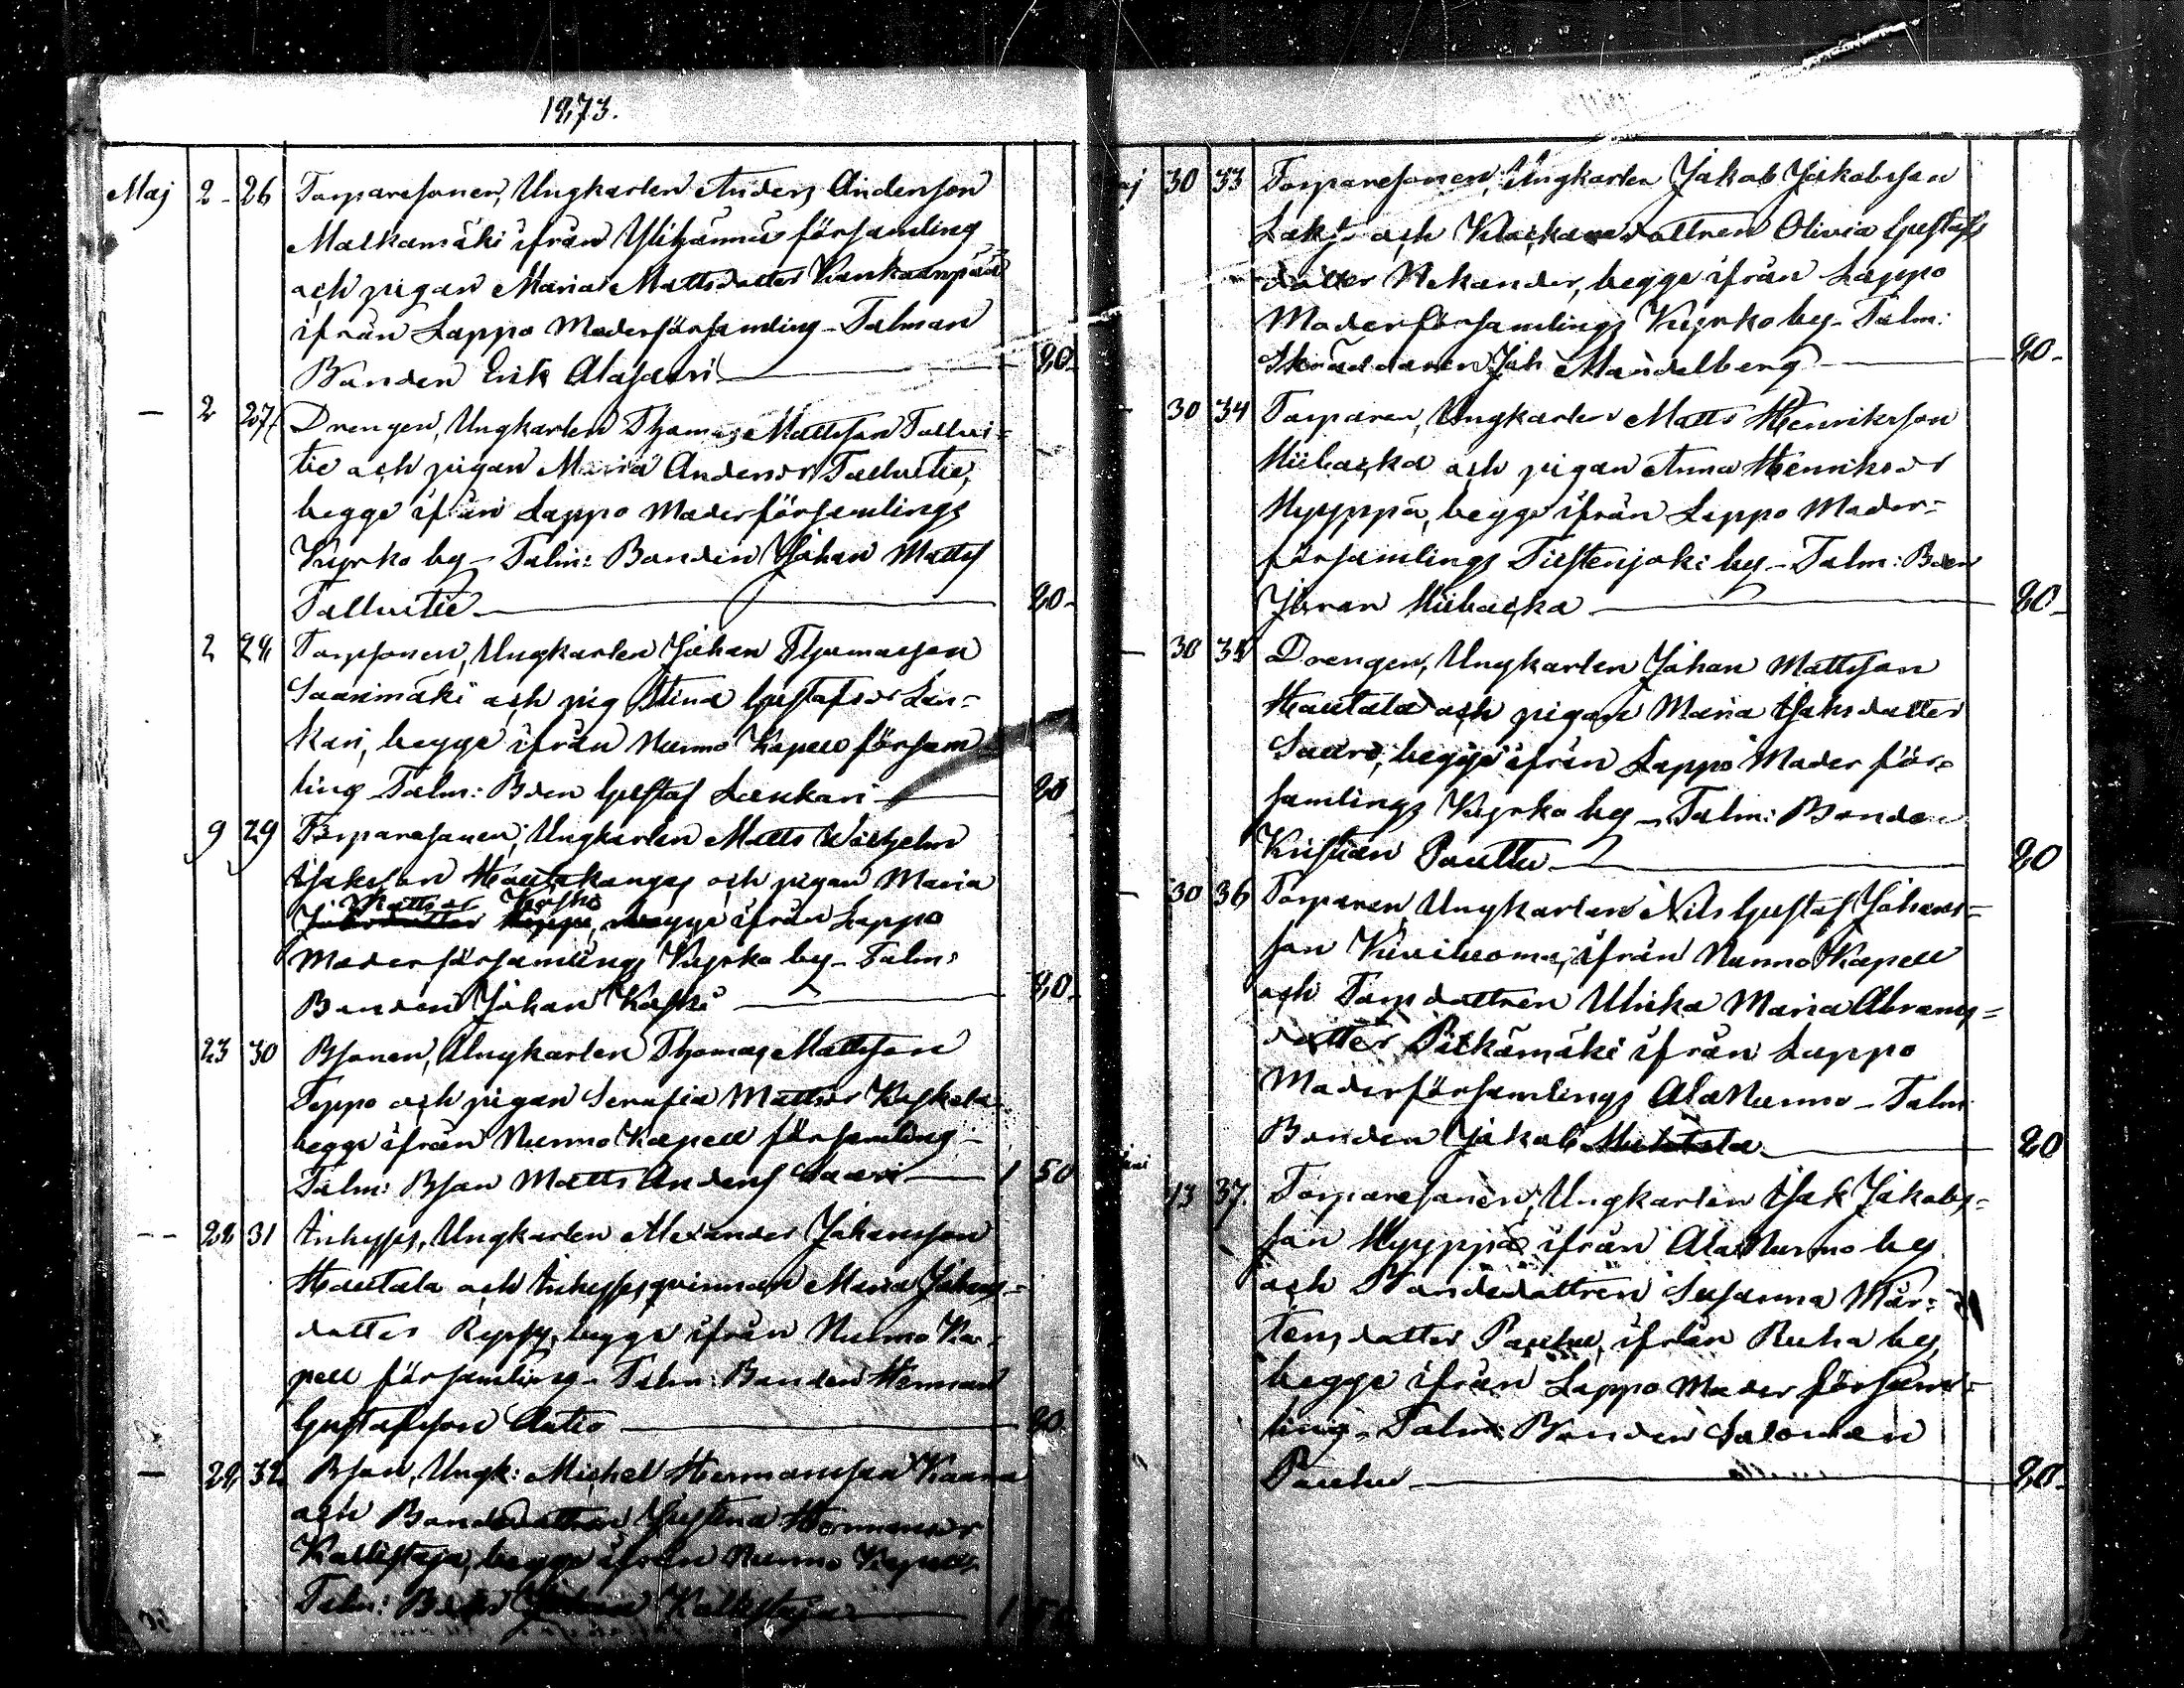 1873.
Maj 2 26 Torparesonen, Ungkarlen Anders Andersson
Matkamäki ifrån Ylihärmä församling
och pigan Maria Mattsdotter Kankaanpää
ifrån Lappo Moderförsamling – Talman
Bonden Erik Alasaari 80
– 2 27 Drengen, Ungkarlen Thomas Mattsson Talluitie
tie och pigan Maria Andersdr Talluitie,
begge ifrån Lappo Moderförsamlings
Kyrko by – Talm: Bonden Johan Matts
Talluitie 80
2 28 Torpsonen, Ungkarlen Johan Thomasson
Saarimäki och pig Stina Gustafsdr Lan-
kari, begge ifrån Nurmo Kapell försam
ling – Talm: Bden Gustaf Lankari 80
9 29 Torparesonen, Ungkarlen Matts Wilhelm
Isaksson Hautakangas och pigan Maria
Mattsdr
begge ifrån Lappo
Moderförsamlings Kyrko by – Talm:
Bonden Johan Koski 80
23 30 Bsonen, Ungkarlen Thomas Mattsson
Teppo och pigan Serafia Mattsdr Keskela
begge ifrån Nurmo Kapell församling –
Talm: Bson Matts Anders Saari 1 50
– 28 31 Inhyses, Ungkarlen Alexander Johansson
Hautala och Inhysesqvinnan Maria Johans-
dotter begge ifrån Nurmo Ka-
pell församling – Talm: Bonden Herman
Gustafsson Antio 80
– 28 32 Bson, Ungk: Michel Hermansson Kaara
och Bondedottren Justina Hermansdr
begge ifrån Nurmo Kapell
Talm: 1 50
30 33 Torparesonen, Ungkarlen Jakob Jakobsson
och Klockaredottren Olivia Gustafs
dotter Nekander, begge ifrån Lappo
Moderförsamlings Kyrko by – Talm:
Skräddaren Joh Mandelberg 80
– 30 34 Torparen, Ungkarlen Matts Henriksson
Niibacka och pigan Anna Henriksdr
Hyyppä, begge ifrån Lappo Moder-
församlings Tiistenjoki by – Talm: Bden
Jöran Niibacka 80
– 30 35 Drengen, Ungkarlen Johan Mattsson
Hautala och pigan Maria Isaksdotter
Saari, begge ifrån Lappo Moder för-
samlings Kyrko by – Talm: Bonden
Kristian Pouttu 80
– 30 36 Torparen, Ungkarlen Nils Gustaf Johans-
son Kiviluoma, ifrån Nurmo Kapell
och Torpdottren Ulrika Maria Abrams-
dotter Pitkämäki ifrån Lappo
Moderförsamlings AlaNurmo – Talm
Bonden Jakob 80
13 37. Torparesonen, Ungkarlen Isak Jakobs-
son Hyyppä ifrån AlaNurmo by
och Bondedottren Susanna Mår-
tensdotter Pouhu, ifrån Ruha by,
begge ifrån Lappo Moder försam-
ling – Talm: Bonden Salomon
Pouhu 80